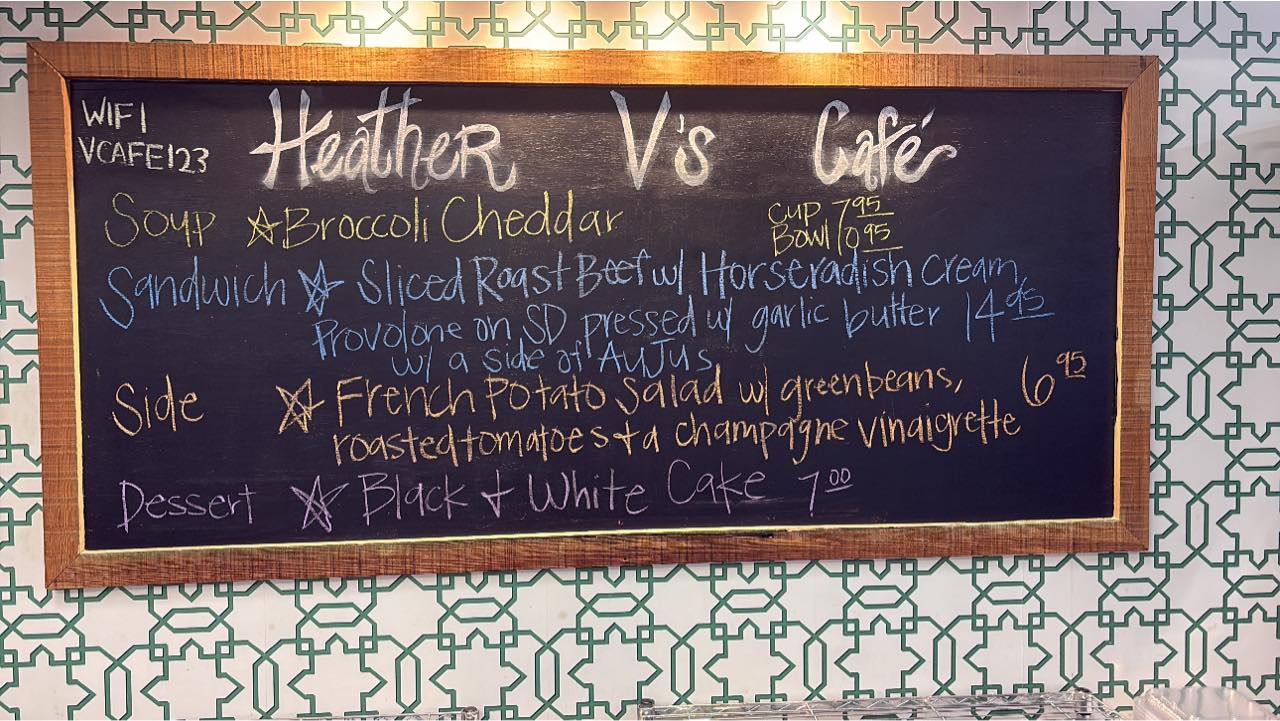 WIFI
VCAFE123
HeatheR V's Café
Soup ☆ Broccoli Cheddar
Cup 7.95
Bowl 10.95
Sandwich ☆ Sliced Roast Beef w/ Horseradish cream,
Provolone on SD pressed w/ garlic butter 14.95
w/ a side of AuJus
Side ☆ French Potato Salad w/ greenbeans, 6.95
roasted tomatoes + a champagne vinaigrette
Dessert ☆ Black + White Cake 7.00